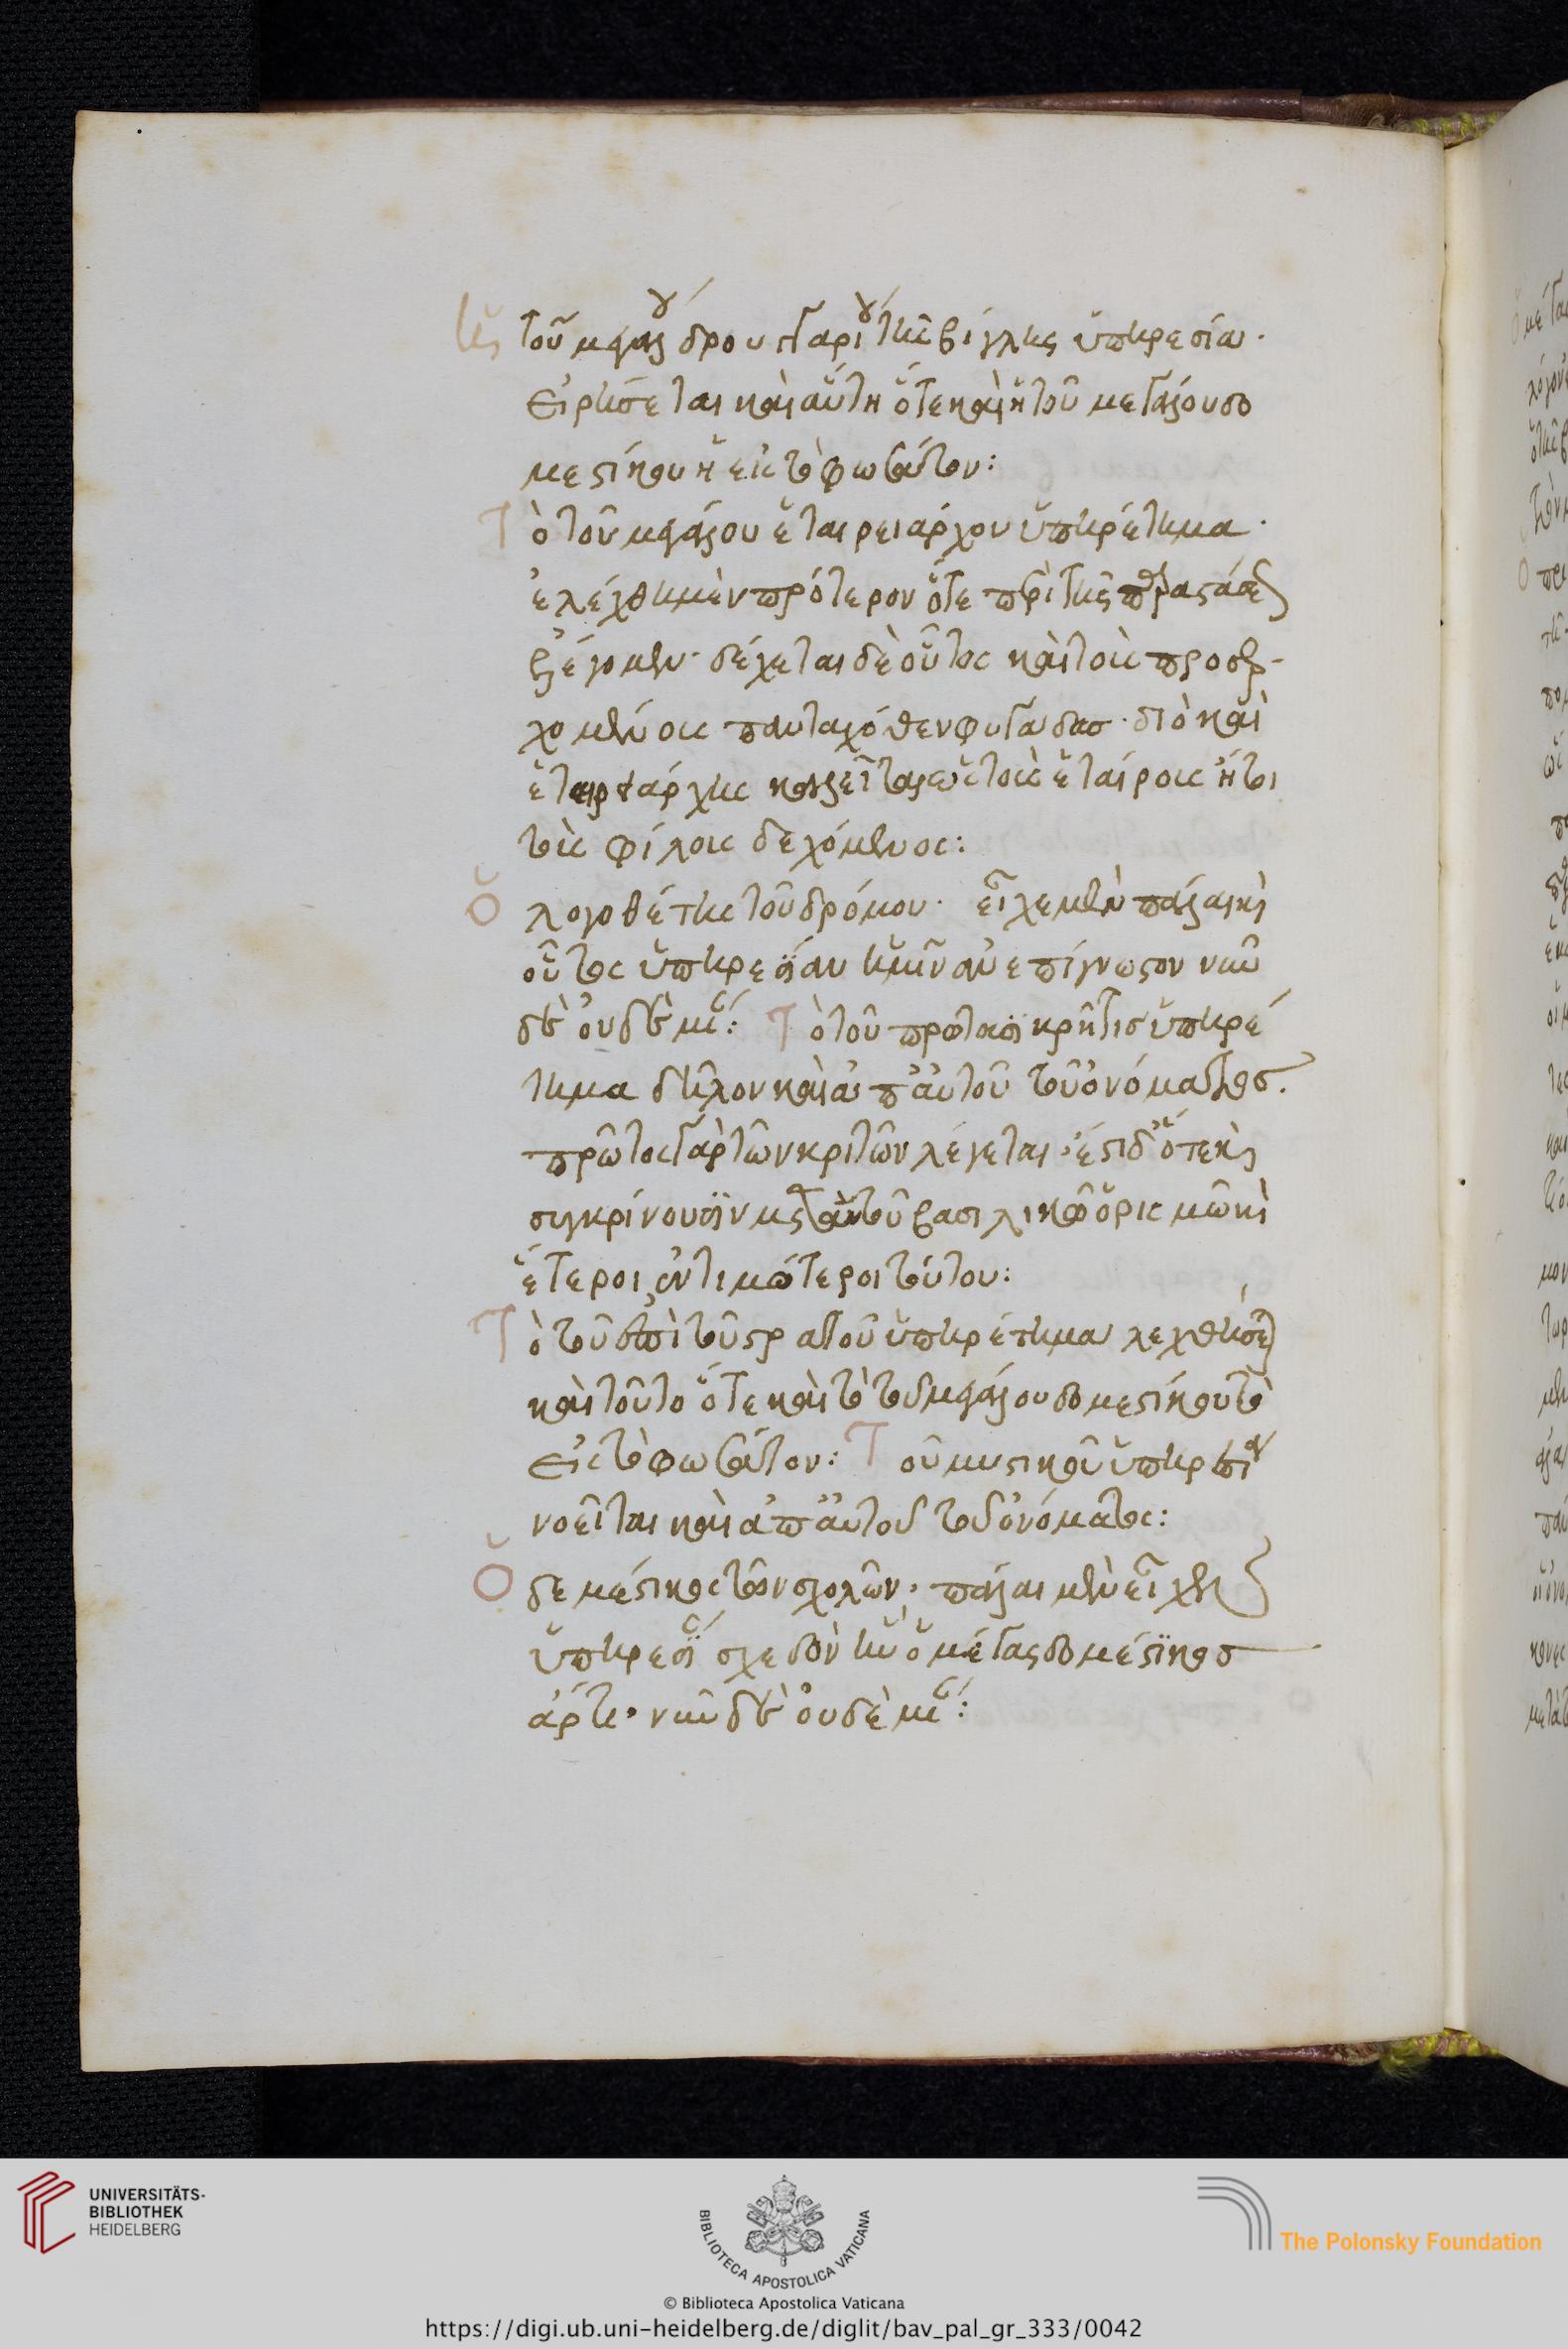 ἡ τοῦ μεγάλου δρουγγαρίου τῆς βίγλης ὑπηρεσία·
εἰρήσεται καὶ αὕτη ὅτε καὶ ἡ τοῦ μεγάλου δο
μεστίκου ἡ εἰς τὸ φωσάτον:
Τὸ τοῦ μεγάλου ἑταιρειάρχου ὑπηρέτημα·
ἐλέχθη μὲν πρότερον ὅτε περὶ τῆς παραστάσεως
ἐλέγομεν· δέχεται δὲ οὗτος καὶ τοὺς προσερ-
χομένους πανταχόθεν φυγάδας· διὸ καὶ
ἑταιρειάρχης καλεῖται ὡς τοὺς ἑταίρους ἤτοι
τοὺς φίλους δεχόμενος:
Ὁ λογοθέτης τοῦ δρόμου· εἶχε μὲν πάλαι καὶ
οὗτος ὑπηρεσίαν ἡμῖν ἀνεπίγνωστον νῦν
δὲ οὐδεμίαν: Τὸ τοῦ πρωτασηκρῆτις ὑπηρέ
τημα δῆλον καὶ ἀπ' αὐτοῦ τοῦ ὀνόματος.
πρῶτος γὰρ τῶν κριτῶν λέγεται· ἔστι δ' ὅτε καὶ
συγκρίνουσιν μετ' αὐτοῦ βασιλικῷ ὁρισμῷ καὶ
ἕτεροι ἐντιμότεροι τούτου:
Τὸ τοῦ ἐπὶ τοῦ στρατοῦ ὑπηρέτημα λεχθήσεται
καὶ τοῦτο ὅτε καὶ τὸ τοῦ μεγάλου δομεστίκου τὸ
εἰς τὸ φωσάτον: Τοῦ μυστικοῦ ὑπηρεσία
νοεῖται καὶ ἀπ' αὐτοῦ τοῦ ὀνόματος:
Ὁ δομέστικος τῶν σχολῶν· πάλαι μὲν εἶχεν
ὑπηρεσίαν σχεδὸν ἣν ὁ μέγας δομέστικος
ἄρτι· νῦν δὲ οὐδεμίαν:
UNIVERSITÄTS-
BIBLIOTHEK
HEIDELBERG
BIBLIOTECA APOSTOLICA VATICANA
The Polonsky Foundation
© Biblioteca Apostolica Vaticana
https://digi.ub.uni-heidelberg.de/diglit/bav_pal_gr_333/0042